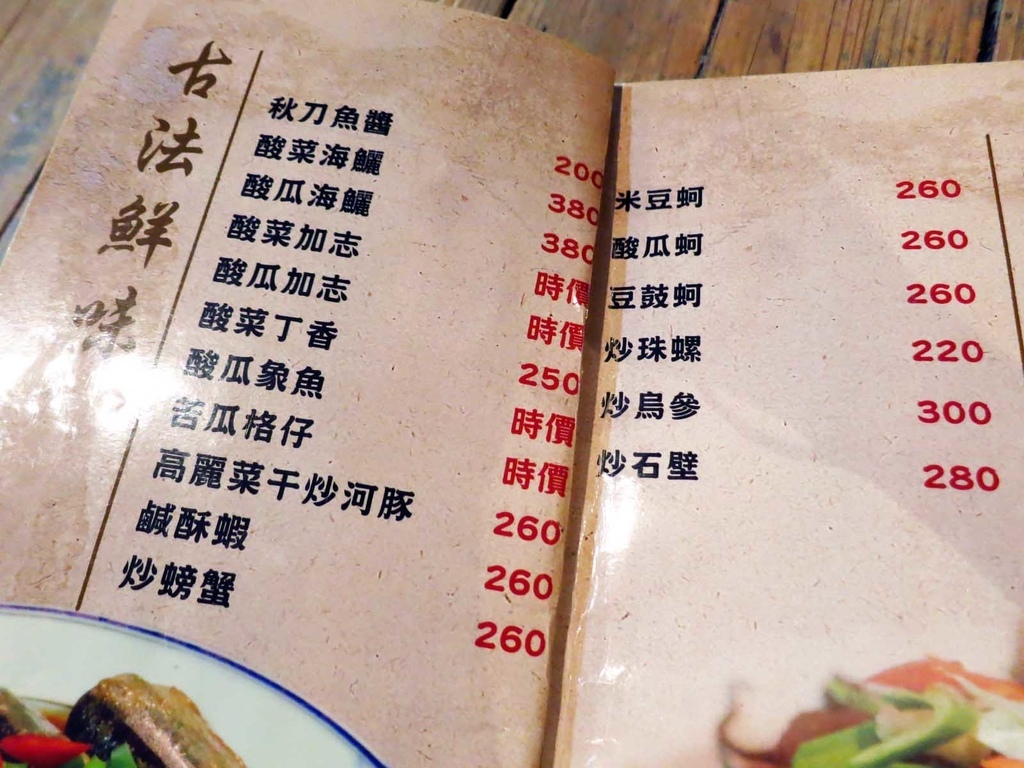 古法鮮味
秋刀魚醬 200
酸菜海鱺 380
酸瓜海鱺 380
酸菜加志 時價
酸瓜加志 時價
酸菜丁香 250
酸瓜象魚 時價
苦瓜格仔 時價
高麗菜干炒河豚 260
鹹酥蝦 260
炒螃蟹 260
米豆蚵 260
酸瓜蚵 260
豆鼓蚵 260
炒珠螺 220
炒烏參 300
炒石壁 280